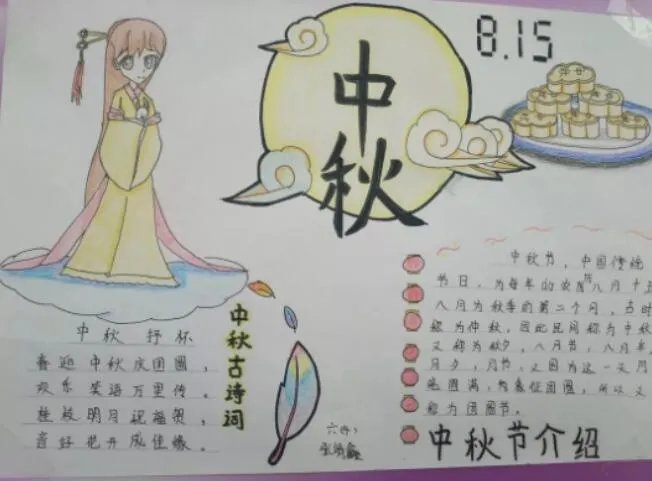 中秋
8.15
中秋 抒怀
喜迎中秋庆团圆，
欢乐笑语万里传。
桂枝明月祝福贺，
喜好花开成佳缘。
中秋古诗词
中秋节，中国传统
节日，为每年的农历八月十五
八月为秋季的第二个月，古时
称为仲秋，因此民间称为中秋
又称为秋夕，八月节，八月半，
月夕，月节，又因为这一天月
亮圆满，象征团圆，所以又
称为团圆节。
中秋节介绍